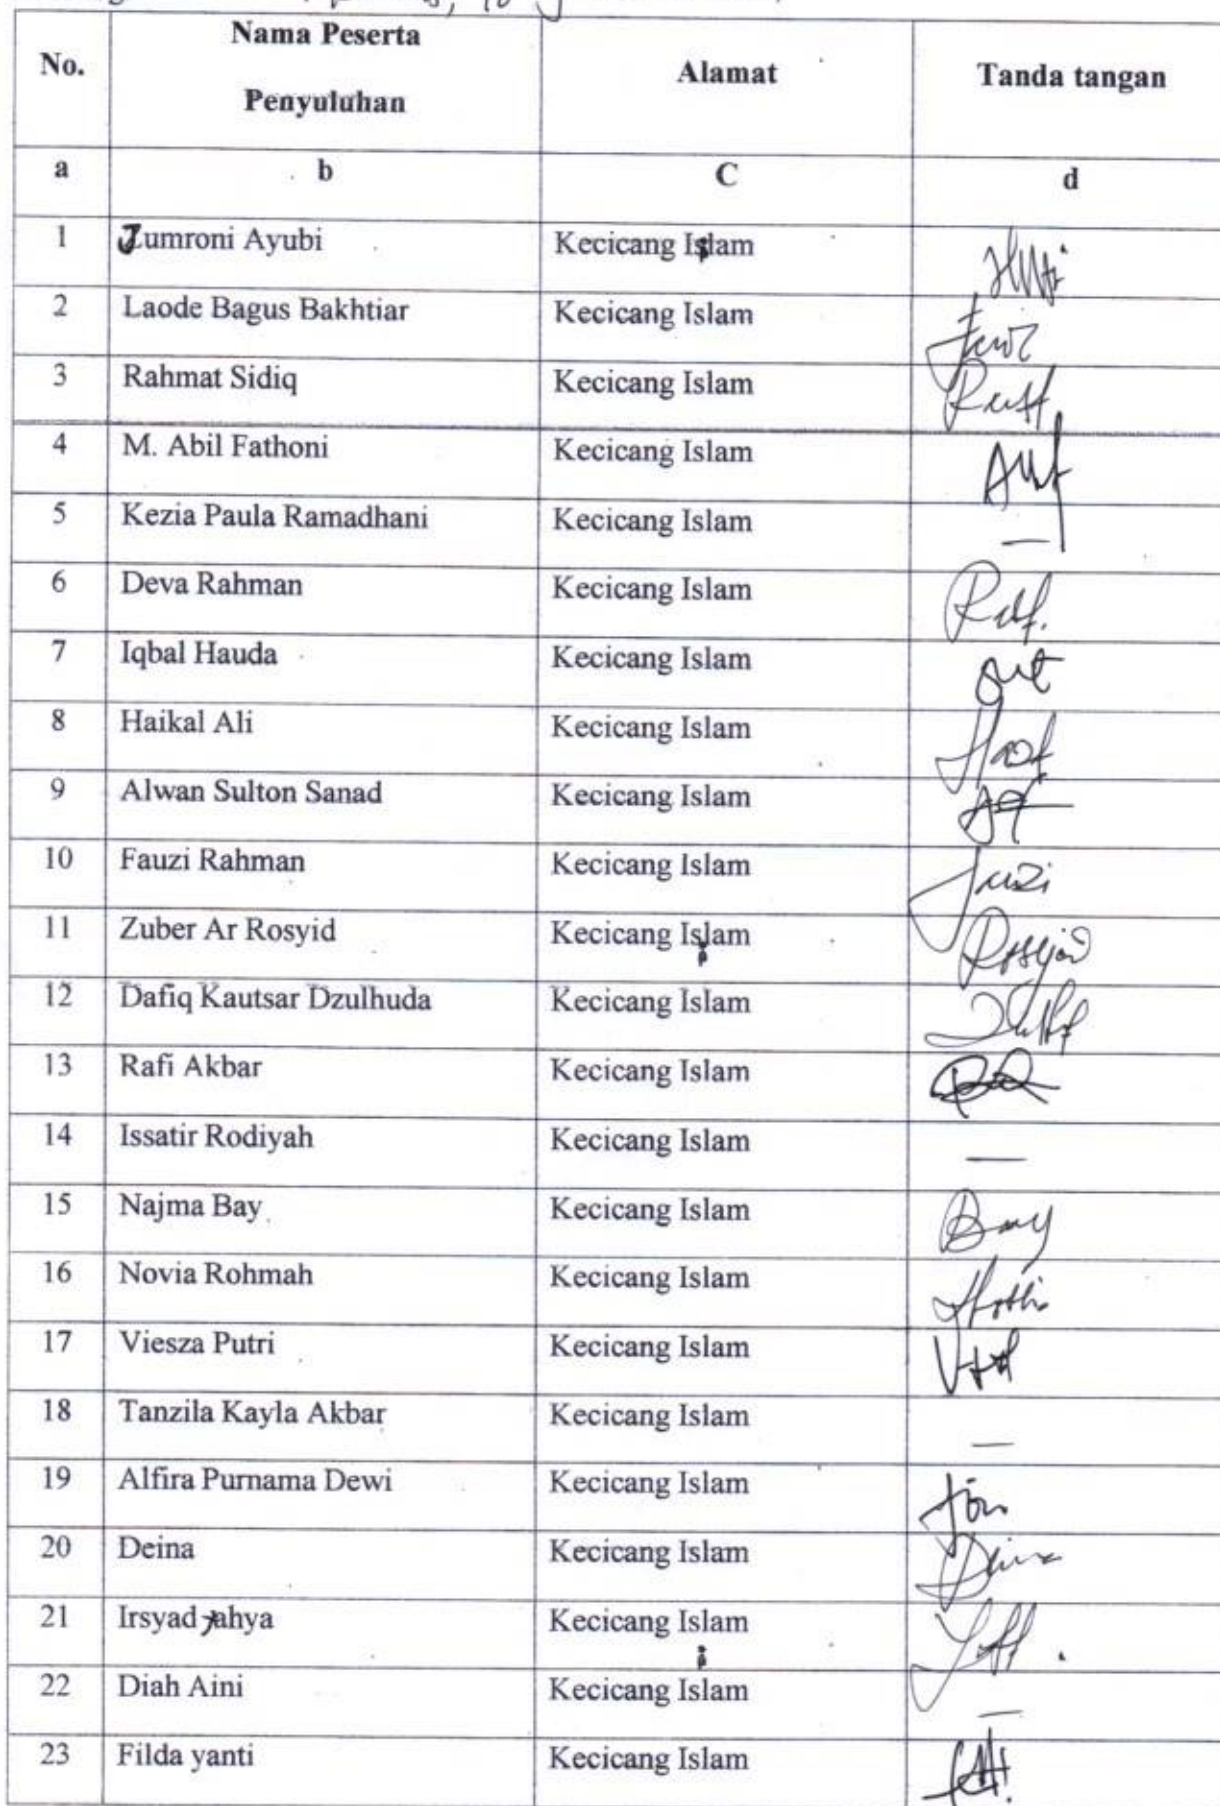 No. Nama Peserta Penyuluhan Alamat Tanda tangan
a b C d
1 Jumroni Ayubi Kecicang Islam
2 Laode Bagus Bakhtiar Kecicang Islam
3 Rahmat Sidiq Kecicang Islam
4 M. Abil Fathoni Kecicang Islam
5 Kezia Paula Ramadhani Kecicang Islam —
6 Deva Rahman Kecicang Islam
7 Iqbal Hauda Kecicang Islam
8 Haikal Ali Kecicang Islam
9 Alwan Sulton Sanad Kecicang Islam
10 Fauzi Rahman Kecicang Islam
11 Zuber Ar Rosyid Kecicang Islam
12 Dafiq Kautsar Dzulhuda Kecicang Islam
13 Rafi Akbar Kecicang Islam
14 Issatir Rodiyah Kecicang Islam —
15 Najma Bay Kecicang Islam Bay
16 Novia Rohmah Kecicang Islam
17 Viesza Putri Kecicang Islam
18 Tanzila Kayla Akbar Kecicang Islam —
19 Alfira Purnama Dewi Kecicang Islam
20 Deina Kecicang Islam
21 Irsyad yahya Kecicang Islam
22 Diah Aini Kecicang Islam —
23 Filda yanti Kecicang Islam